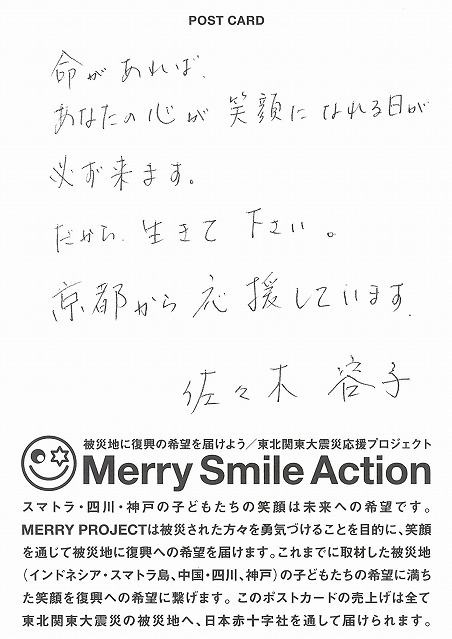 POST CARD
命があれば、
あなたの心が笑顔になれる日が
必ず来ます。
だから、生きて下さい。
京都から応援しています。
佐々木 容子
被災地に復興の希望を届けよう／東北関東大震災応援プロジェクト
Merry Smile Action
スマトラ・四川・神戸の子どもたちの笑顔は未来への希望です。
MERRY PROJECTは被災された方々を勇気づけることを目的に、笑顔
を通じて被災地に復興への希望を届けます。これまでに取材した被災地
（インドネシア・スマトラ島、中国・四川、神戸）の子どもたちの希望に満ち
た笑顔を復興への希望に繋げます。このポストカードの売上げは全て
東北関東大震災の被災地へ、日本赤十字社を通して届けられます。